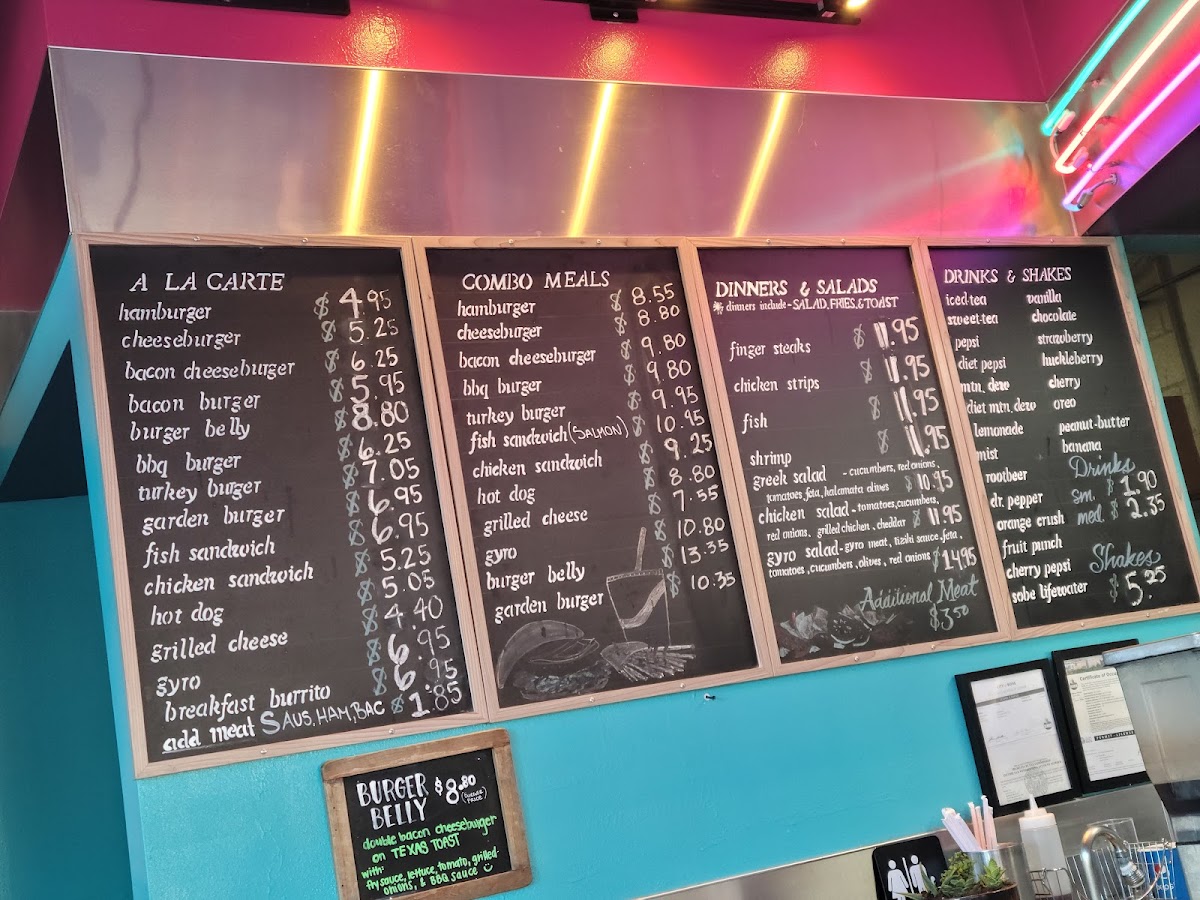 A LA CARTE
hamburger $4.95
cheeseburger $5.25
bacon cheeseburger $6.25
bacon burger $5.95
burger belly $8.80
bbq burger $6.25
turkey burger $7.05
garden burger $6.95
fish sandwich $6.95
chicken sandwich $5.25
hot dog $5.05
grilled cheese $4.40
gyro $6.95
breakfast burrito $6.95
add meat SAUS, HAM, BAC $1.85
COMBO MEALS
hamburger $8.55
cheeseburger $8.80
bacon cheeseburger $9.80
bbq burger $9.80
turkey burger $9.95
fish sandwich (SALMON) $10.95
chicken sandwich $9.25
hot dog $8.80
grilled cheese $7.55
gyro $10.80
burger belly $13.35
garden burger $10.35
DINNERS & SALADS
* dinners include - SALAD, FRIES, & TOAST
finger steaks $11.95
chicken strips $11.95
fish $11.95
shrimp $11.95
greek salad - cucumbers, red onions,
tomatoes, feta, kalamata olives $10.95
chicken salad - tomatoes, cucumbers,
red onions, grilled chicken, cheddar $11.95
gyro salad - gyro meat, tiziki sauce, feta,
tomatoes, cucumbers, olives, red onions $14.95
Additional Meat
$3.50
DRINKS & SHAKES
iced-tea
sweet-tea
pepsi
diet pepsi
mtn. dew
diet mtn. dew
lemonade
mist
rootbeer
dr. pepper
orange crush
fruit punch
cherry pepsi
sobe lifewater
vanilla
chocolate
strawberry
huckleberry
cherry
oreo
peanut-butter
banana
Drinks
sm. $1.90
med. $2.35
Shakes
$5.25
BURGER $8.80
BELLY (BURGER PRICE)
double bacon cheeseburger
on TEXAS TOAST
with:
fry sauce, lettuce, tomato, grilled-
onions, & BBQ sauce